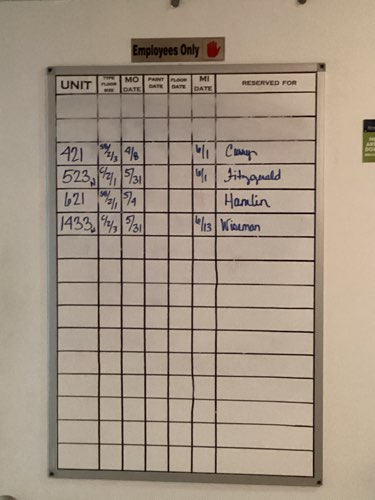 Employees Only
UNIT TYPE FLOOR SIZE MO DATE PAINT DATE FLOOR DATE MI DATE RESERVED FOR
421 4/8 6/1
523 C/2/1 5/31 6/1 Fitzgerald
621 5/4 Hamlin
1433 C/2/3 5/31 6/13 Wiseman